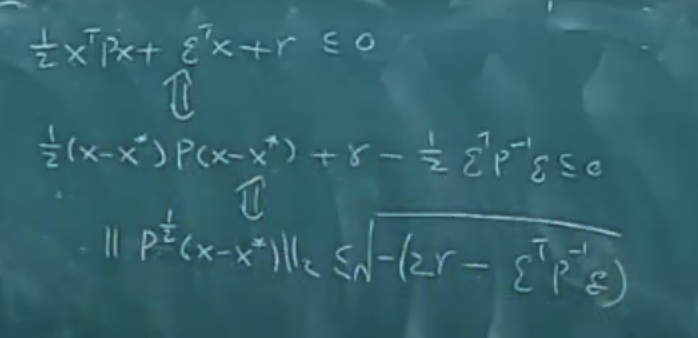 ½xᵀPx + qᵀx + r ≤ 0
⇕
½(x-x*)P(x-x*) + r - ½ qᵀP⁻¹q ≤ 0
⇕
‖P^½(x-x*)‖₂ ≤ √(-(2r - qᵀP⁻¹q))